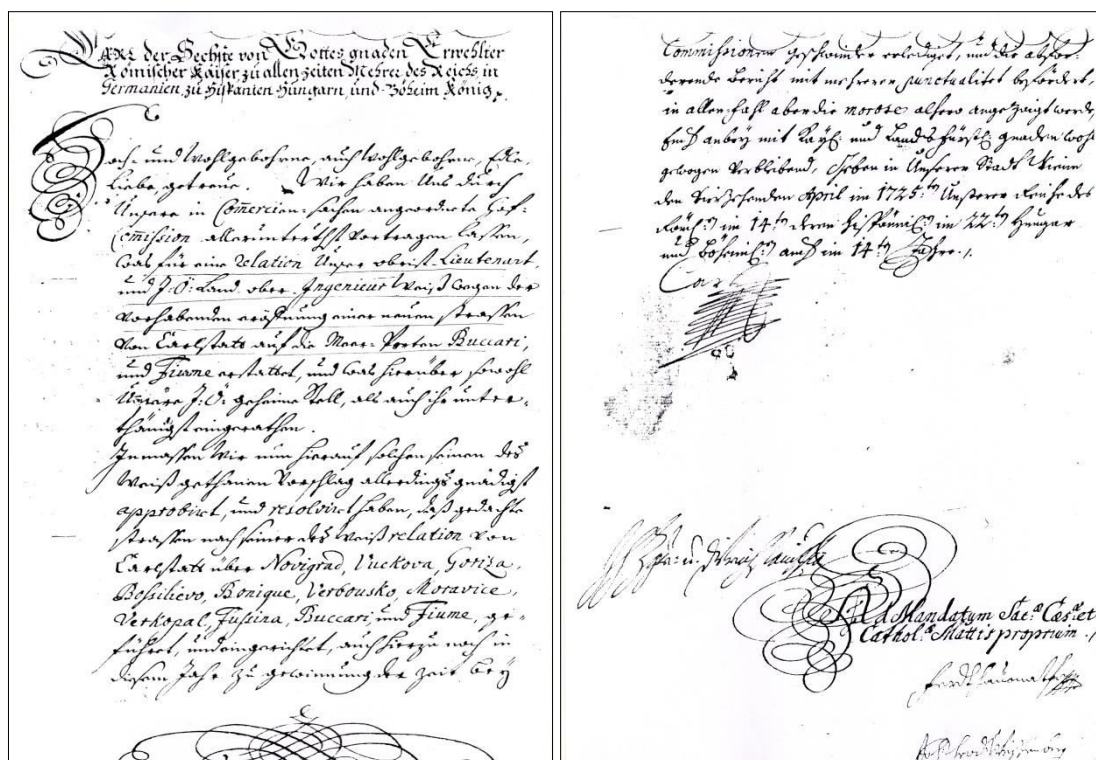 CARL der Sechste von Gottes gnaden Erwehlter
Römischer Kaiser zu allen zeiten Mehrer des Reichs, in
Germanien, zu Hispanien Hungarn, und Böheim König.
Hoch- und Wohlgebohrne, auch Wohlgebohrne, Edle,
Liebe, getreue. Wir haben Uns durch
Unsere in Commercien-sachen angeordnete Hof-
Commission allerunterthst vortragen lassen,
was für eine relation Unser obrist Lieutenant,
und I: Ö: Land ober-Ingenieur Weiß wegen der
vorhabenden eröffnung einer neuen strassen
von Carlstatt auf die Meer-Porten Buccari,
und Fiume erstattet, und was hierüber sowohl
Unsere I: Ö: geheime Stell, als auch ihr unter-
thänigst eingerathen.
Inmassen Wir nun hierauf solchen seinen des
Weiß gethanen Vorschlag allerdings gnädigst
approbirt, und resolvirt haben, daß gedachte
strassen nach seiner des Weiß relation von
Carlstatt über Novigrad, Vuckova, Goriza,
Bossilievo, Bonique, Verbousko, Moravice,
Verkopal, Fussina, Buccari, und Fiume, ge-
führet, und eingerichtet, auch hierzu noch in
diesem Jahr zu gewinnung der zeit bey
Commissionen geschwinder erlediget, und die abfor-
derende bericht mit mehrerer punctualitet befördert,
in allen fahl aber die morose anhero angezaigt werde,
Euch anbey mit Kayl: und Landsfürstl: gnaden wohl
gewogen verbleibend, Geben in Unserer Stadt Wienn
den April im 1725.ten Unserer Reiche des
Röml: im 14.ten deren Hispanisl: im 22.ten Hungar
und Böheiml: auch im 14.ten Jahre.
Carl
Ad Mandatum Sac.ae Caes.ae et
Cathol.ae Mattis proprium.